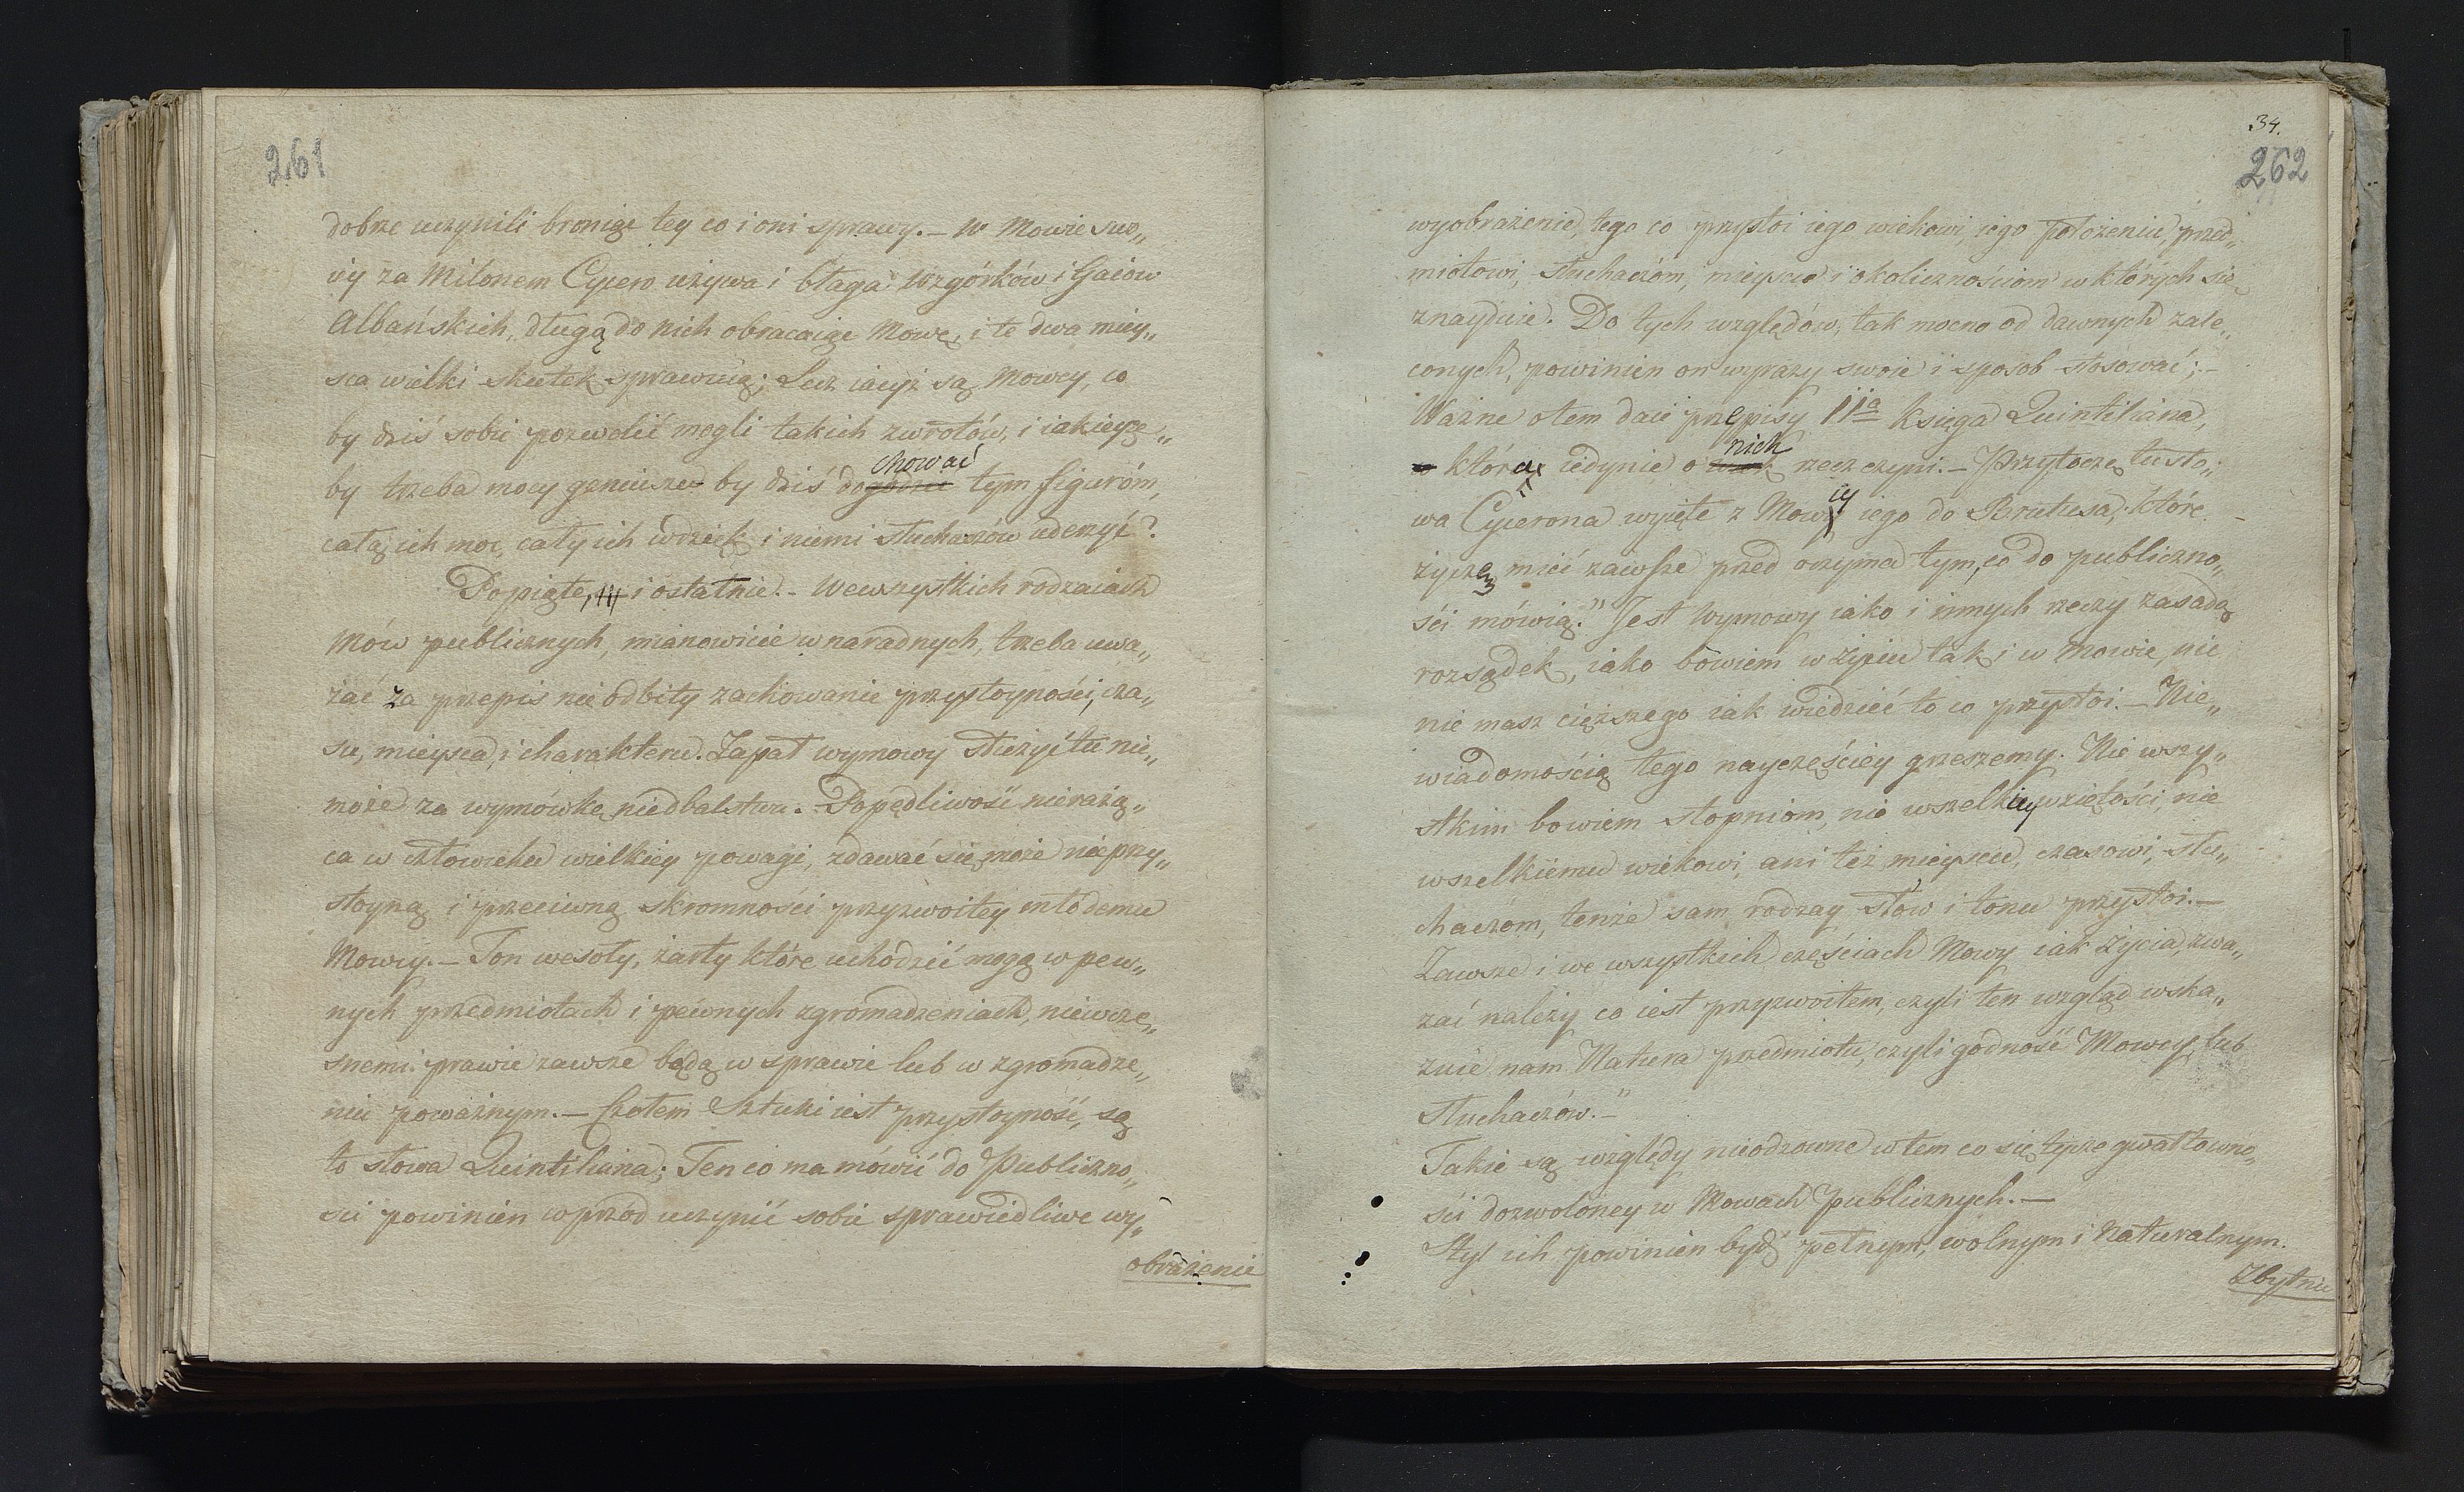 261
dobrze uczynili broniąc tey co i oni sprawy. – W Mowie swo„
iey za Milonem Cycero używa i błaga Wzgórków i Gaiów
Albańskich, długą do nich obracaiąc Mowę, i te dwa miey„
sca wielki skutek sprawuią; Lecz iacyż są Mowcy, co
by dziś sobie pozwolić mogli takich zwrotów, i iakieyże„
by trzeba mocy geniuszu by dziś dogodzić tym figuróm,
chować
całą ich moc, cały ich wdzięk i niemi słuchaczów uderzyć?
Popiąte, i ostatnie. – We wszystkich rodzaiach
Mów publicznych, mianowicie w naradnych, trzeba uwa„
żać za przepis nie odbity zachowanie przystoyności, cza„
su, mieysca, i charakteru. Zapał wymowy służyć tu nie„
może za wymówkę niedbalstwu. Popędliwość nierażą„
ca w człowieku wielkiey powagi, zdawać się może nieprzy„
stoyną i przeciwną skromności przyzwoitey młodemu
Mowcy. – Ton wesoły, żarty które uchodzić mogą w pew„
nych przedmiotach i pewnych zgromadzeniach, niewcze„
snemi prawie zawsze będą w sprawie lub w zgromadze„
niu poważnym. – Czołem Sztuki iest przystoyność, są
to słowa Quintiliana; Ten co ma mówić do Publiczno„
ści powinien wprzód uczynić sobie sprawiedliwe wy„
obrażenie
34.
262
wyobrażenie, tego co przystoi iego wiekowi, iego położeniu, przed„
miotowi, słuchaczóm, mieyscu i okolicznościom w których się
znayduie. Do tych względów, tak mocno od dawnych zale„
conych, powinien on wyrazy swoie i sposob stosować; –
Ważne otem daie przepisy 11a księga Quintiliana,
która iedynie o nich rzecz czyni. – Przytoczę tu sło„
wa Cycerona wyięte z Mowy iego do Brutusa, które
iey
życzę mieć zawsze przed oczyma tym, co do publiczno„
ści mówią. "Jest Wymowy iako i innych rzeczy zasadą
rozsądek, iako bowiem w życiu tak i w Mowie, nic
nie masz cięższego iak wiedzieć to co przystoi. – Nie„
wiadomością tego nayczęściey grzeszemy. Nie wszy„
stkim bowiem stopniom, nie wszelkiey wziętości, nie
wszelkiemu wiekowi, ani też mieyscu, czasowi, słu„
chaczóm, tenże sam rodzay słów i tonu przystoi. –
Zawsze i we wszystkich częściach Mowy iak życia, zwa„
żać należy co iest przyzwoitem, czyli ten wzgląd wska„
zuie nam Natura przedmiotu, czyli godność Mowcy, lub
słuchaczów. –"
Takie są względy nieodzowne w tem co się tycze gwałtowno„
ści dozwoloney w Mowach Publicznych. –
Styl ich powinien bydź pełnym, wolnym i Naturalnym.
Zbytnie